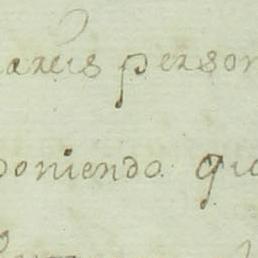 areis person
poniendo qu